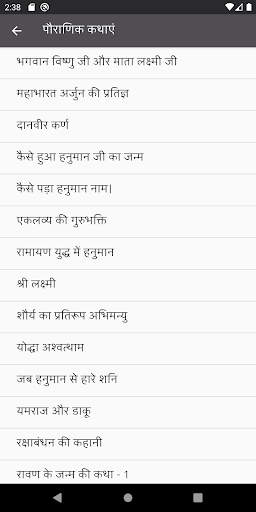 2:38
पौराणिक कथाएं
भगवान विष्णु जी और माता लक्ष्मी जी
महाभारत अर्जुन की प्रतिज्ञ
दानवीर कर्ण
कैसे हुआ हनुमान जी का जन्म
कैसे पड़ा हनुमान नाम।
एकलव्य की गुरुभक्ति
रामायण युद्ध में हनुमान
श्री लक्ष्मी
शौर्य का प्रतिरूप अभिमन्यु
योद्धा अश्वत्थाम
जब हनुमान से हारे शनि
यमराज और डाकू
रक्षाबंधन की कहानी
रावण के जन्म की कथा - 1